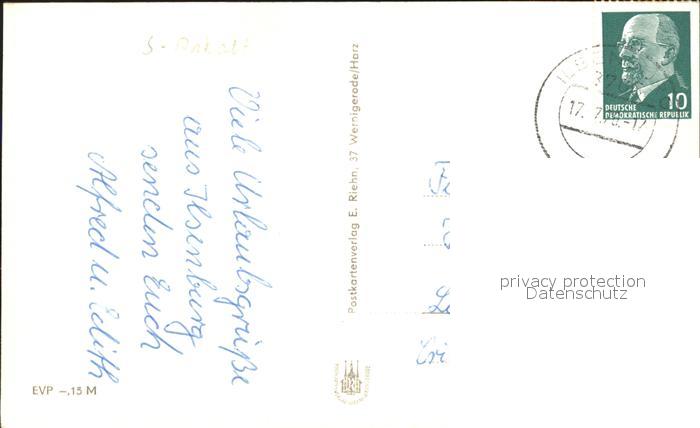 Viele Urlaubsgrüße
aus Ilsenburg
senden Euch
Alfred u. Edith
EVP –,15 M
Postkartenverlag E. Riehn, 37 Wernigerode/Harz
10
DEUTSCHE
DEMOKRATISCHE REPUBLIK
17. 7.
privacy protection
Datenschutz